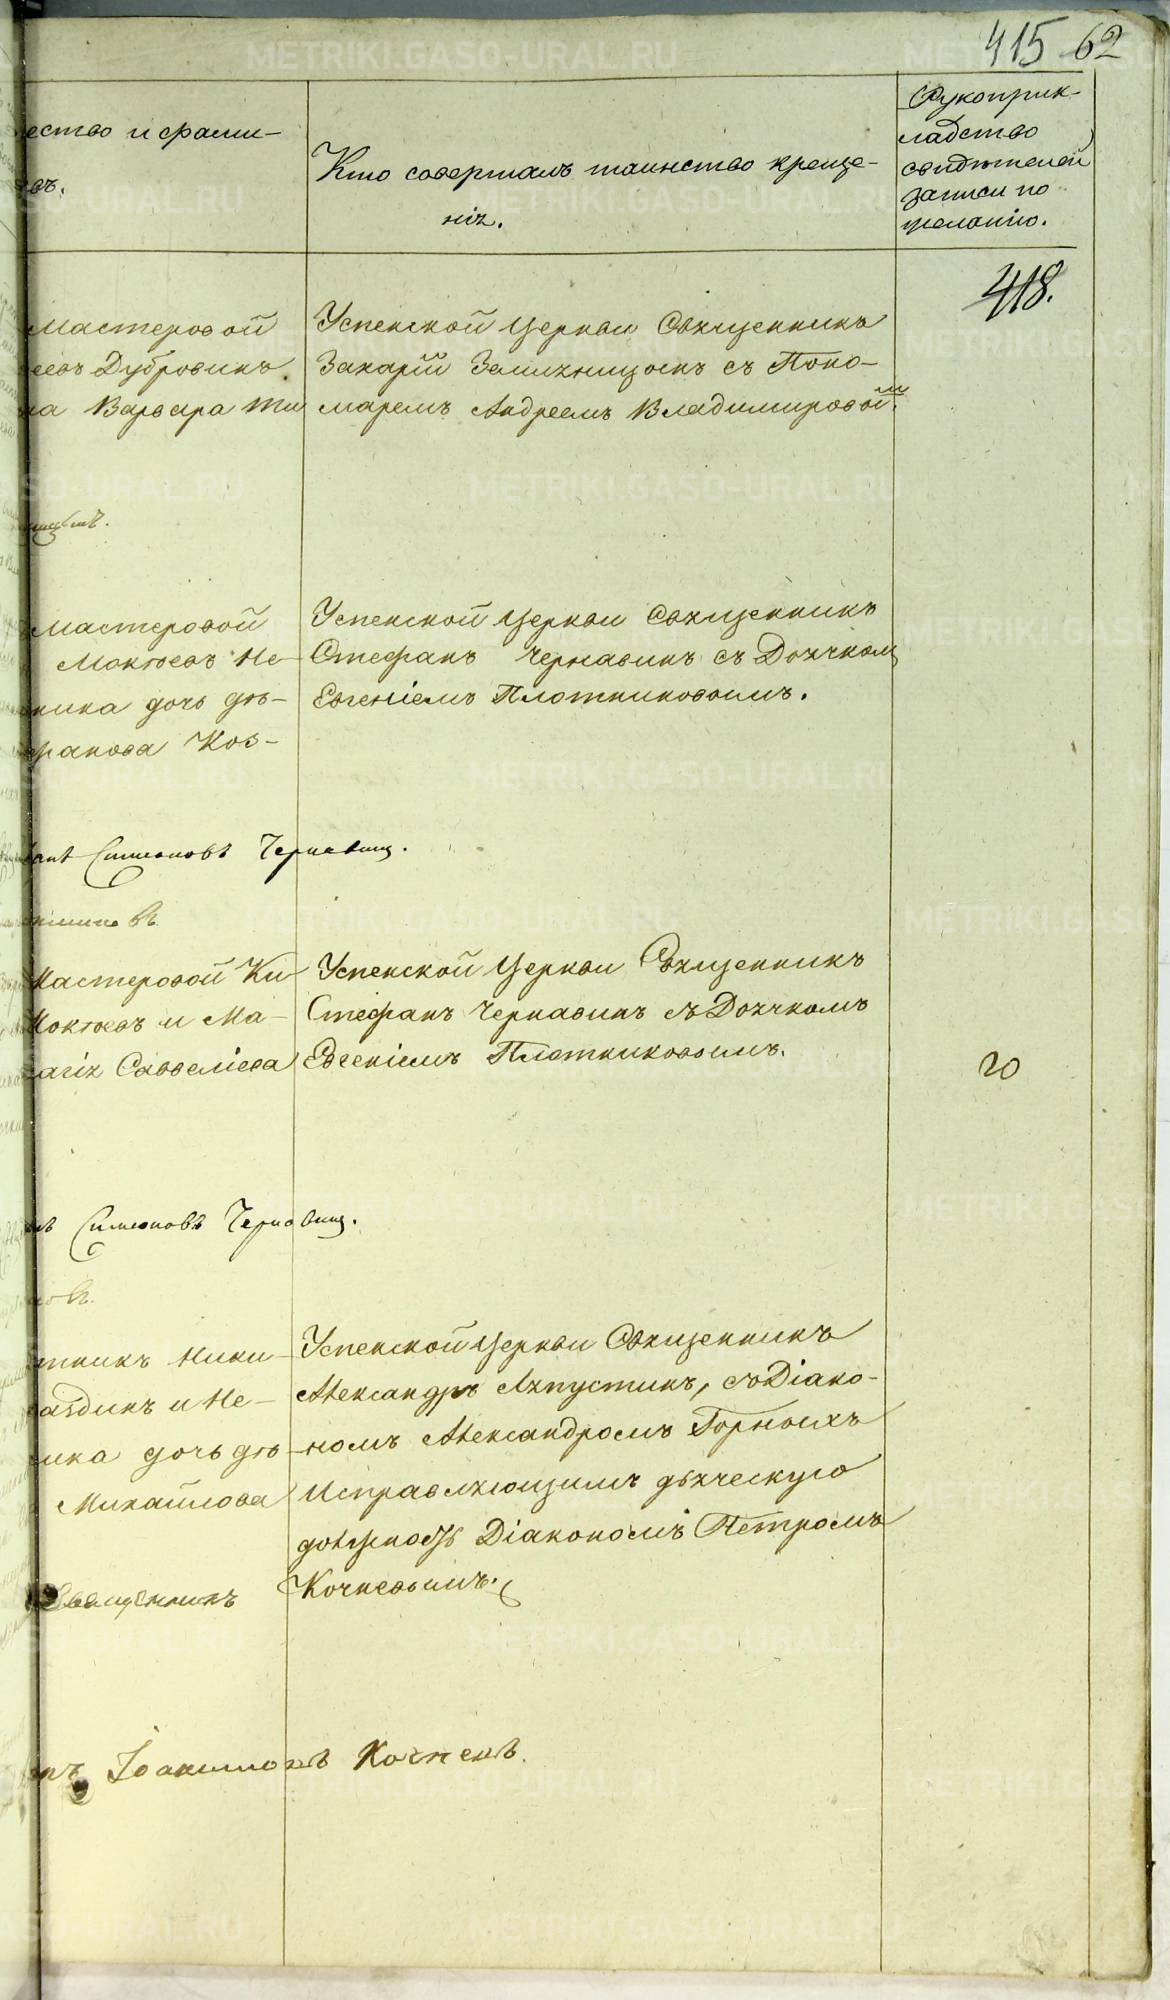 415 62
ество и фами-
евъ.
Кто совершалъ таинство креще-
нія.
Рукоприк-
ладство
свидѣтелей
записи по
желанію.
418.
Мастеровой
еевъ Дубровинъ
на Варвара Ти
Успенской Церкви Священникъ
Захарій Земляницынъ съ Поно-
маремъ Андреемъ Владимировой.
Мастеровой
Мокѣевъ Не-
ника дочь дѣ-
фанова Коз-
Успенской Церкви Священникъ
Стефанъ Чернавинъ съ Дьячкомъ
Евгеніемъ Плотниковымъ.
Симеоновъ Чернавинъ.
Мастеровой Ки
Мокѣевъ и Ма-
агія Савваліева
Успенской Церкви Священникъ
Стефанъ Чернавинъ съ Дьячкомъ
Евгеніемъ Плотниковымъ.
20
Симеоновъ Чернавинъ.
тникъ Ники-
и Не-
ника дочь дѣ
Михайлова
Священникъ
Успенской Церкви Священникъ
Александръ Ляпустинъ, съ Діако-
номъ Александромъ Горныхъ
Исправляющимъ дьяческую
должность Діакономъ Петромъ
Кочневымъ.
Іоакимовъ Кочневъ.
METRIKI.GASO-URAL.RU